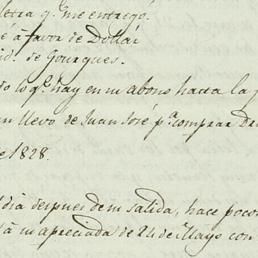 letra q.e me entregó.
é á favor de Dollar
id. de Gourgues.
do lo q.e hay en mi abono hasta la
n llevo de Juan José p.a comprar
e 1828.
dia despues de mi salida, hace poco
tá mi apreciada de 24 de Mayo con